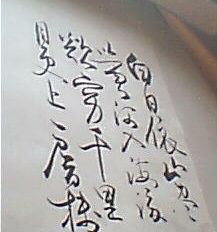 白日依山尽
黄河入海流
欲穷千里
目更上一层楼